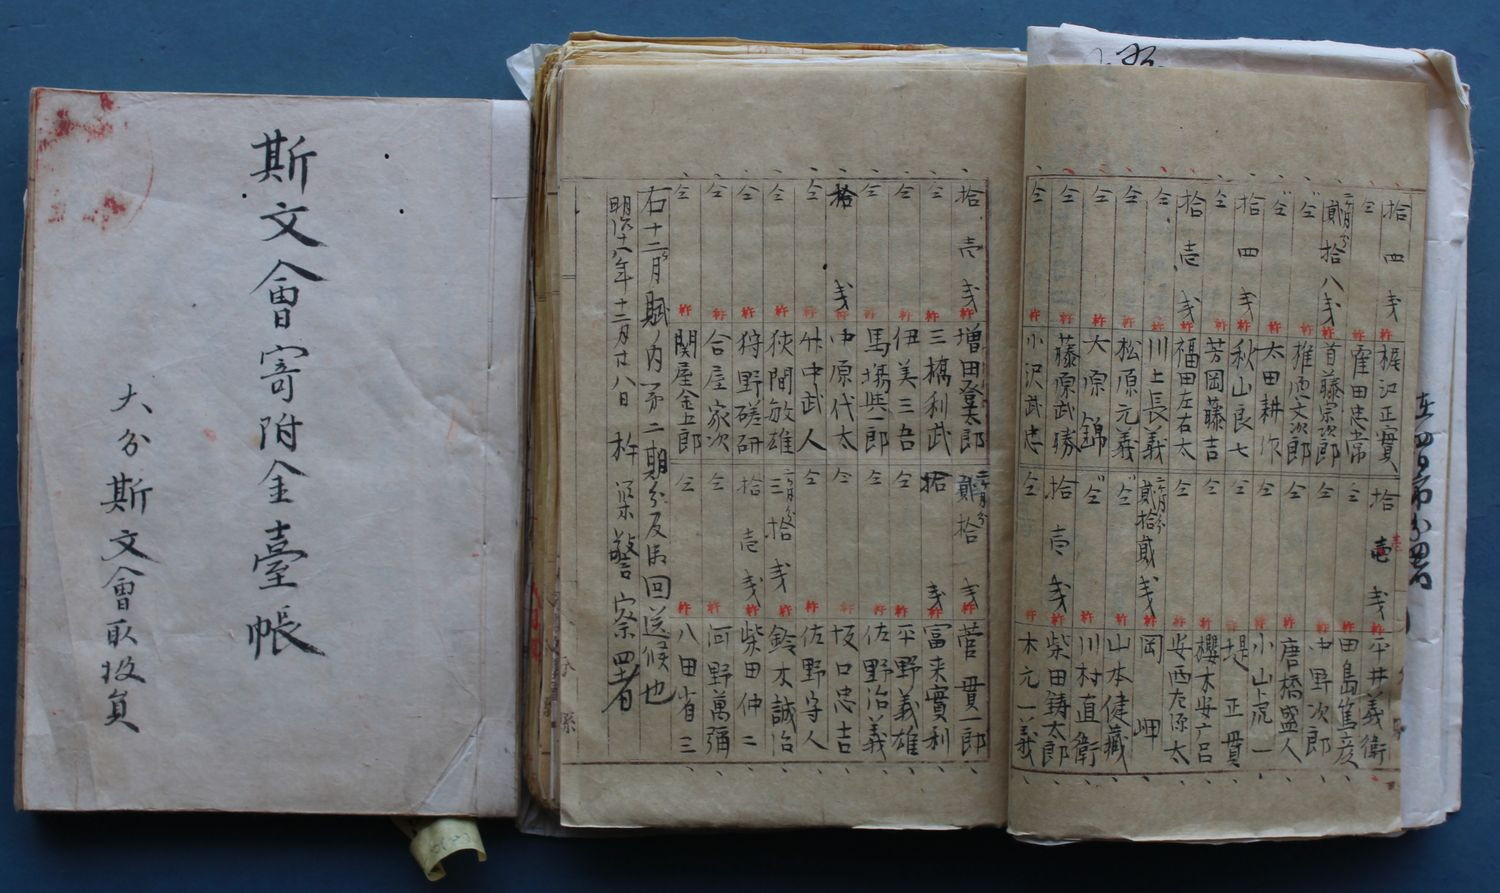 斯文會寄附金臺帳
大分斯文會取扱員
拾四戋 梶沢正實
仝 窪田忠常
二ヶ月分 貳拾八戋 首藤宗次郎
仝 椎原文次郎
仝 太田耕作
拾四戋 秋山良七
仝 芳岡藤吉
拾壱戋 福田左右太
仝 川上長義
仝 松原元義
仝 大原錦
仝 藤原武勝
仝 小沢武忠
拾壱戋 平井義衛
仝 田島篤彦
仝 中野次郎
仝 唐橋盛人
仝 小山虎一
仝 堤正貫
仝 櫻木安六呂
仝 安西左源太
二ヶ月分 貳拾貳戋 岡岬
仝 山本健藏
仝 川村直衛
拾壱戋 柴田鋳太郎
仝 木元一義
拾壱戋 増田登太郎
仝 三橋利武
仝 伊美三吾
仝 馬場與一郎
拾戋 中原代太
仝 竹中武人
仝 狹間敏雄
仝 狩野磋研
仝 合屋家次
仝 関屋金五郎
二ヶ月分 貳拾戋 菅貫一郎
拾戋 冨来實利
仝 平野義雄
仝 佐野治義
仝 坂口忠吉
仝 佐野守人
三拾戋 鈴木誠治
拾壱戋 柴田仲二
仝 河野萬彌
仝 八田省三
右十二ヶ月賦ノ内第二期分及御回送候也
明治十八年十二月廿八日 杵築警察署